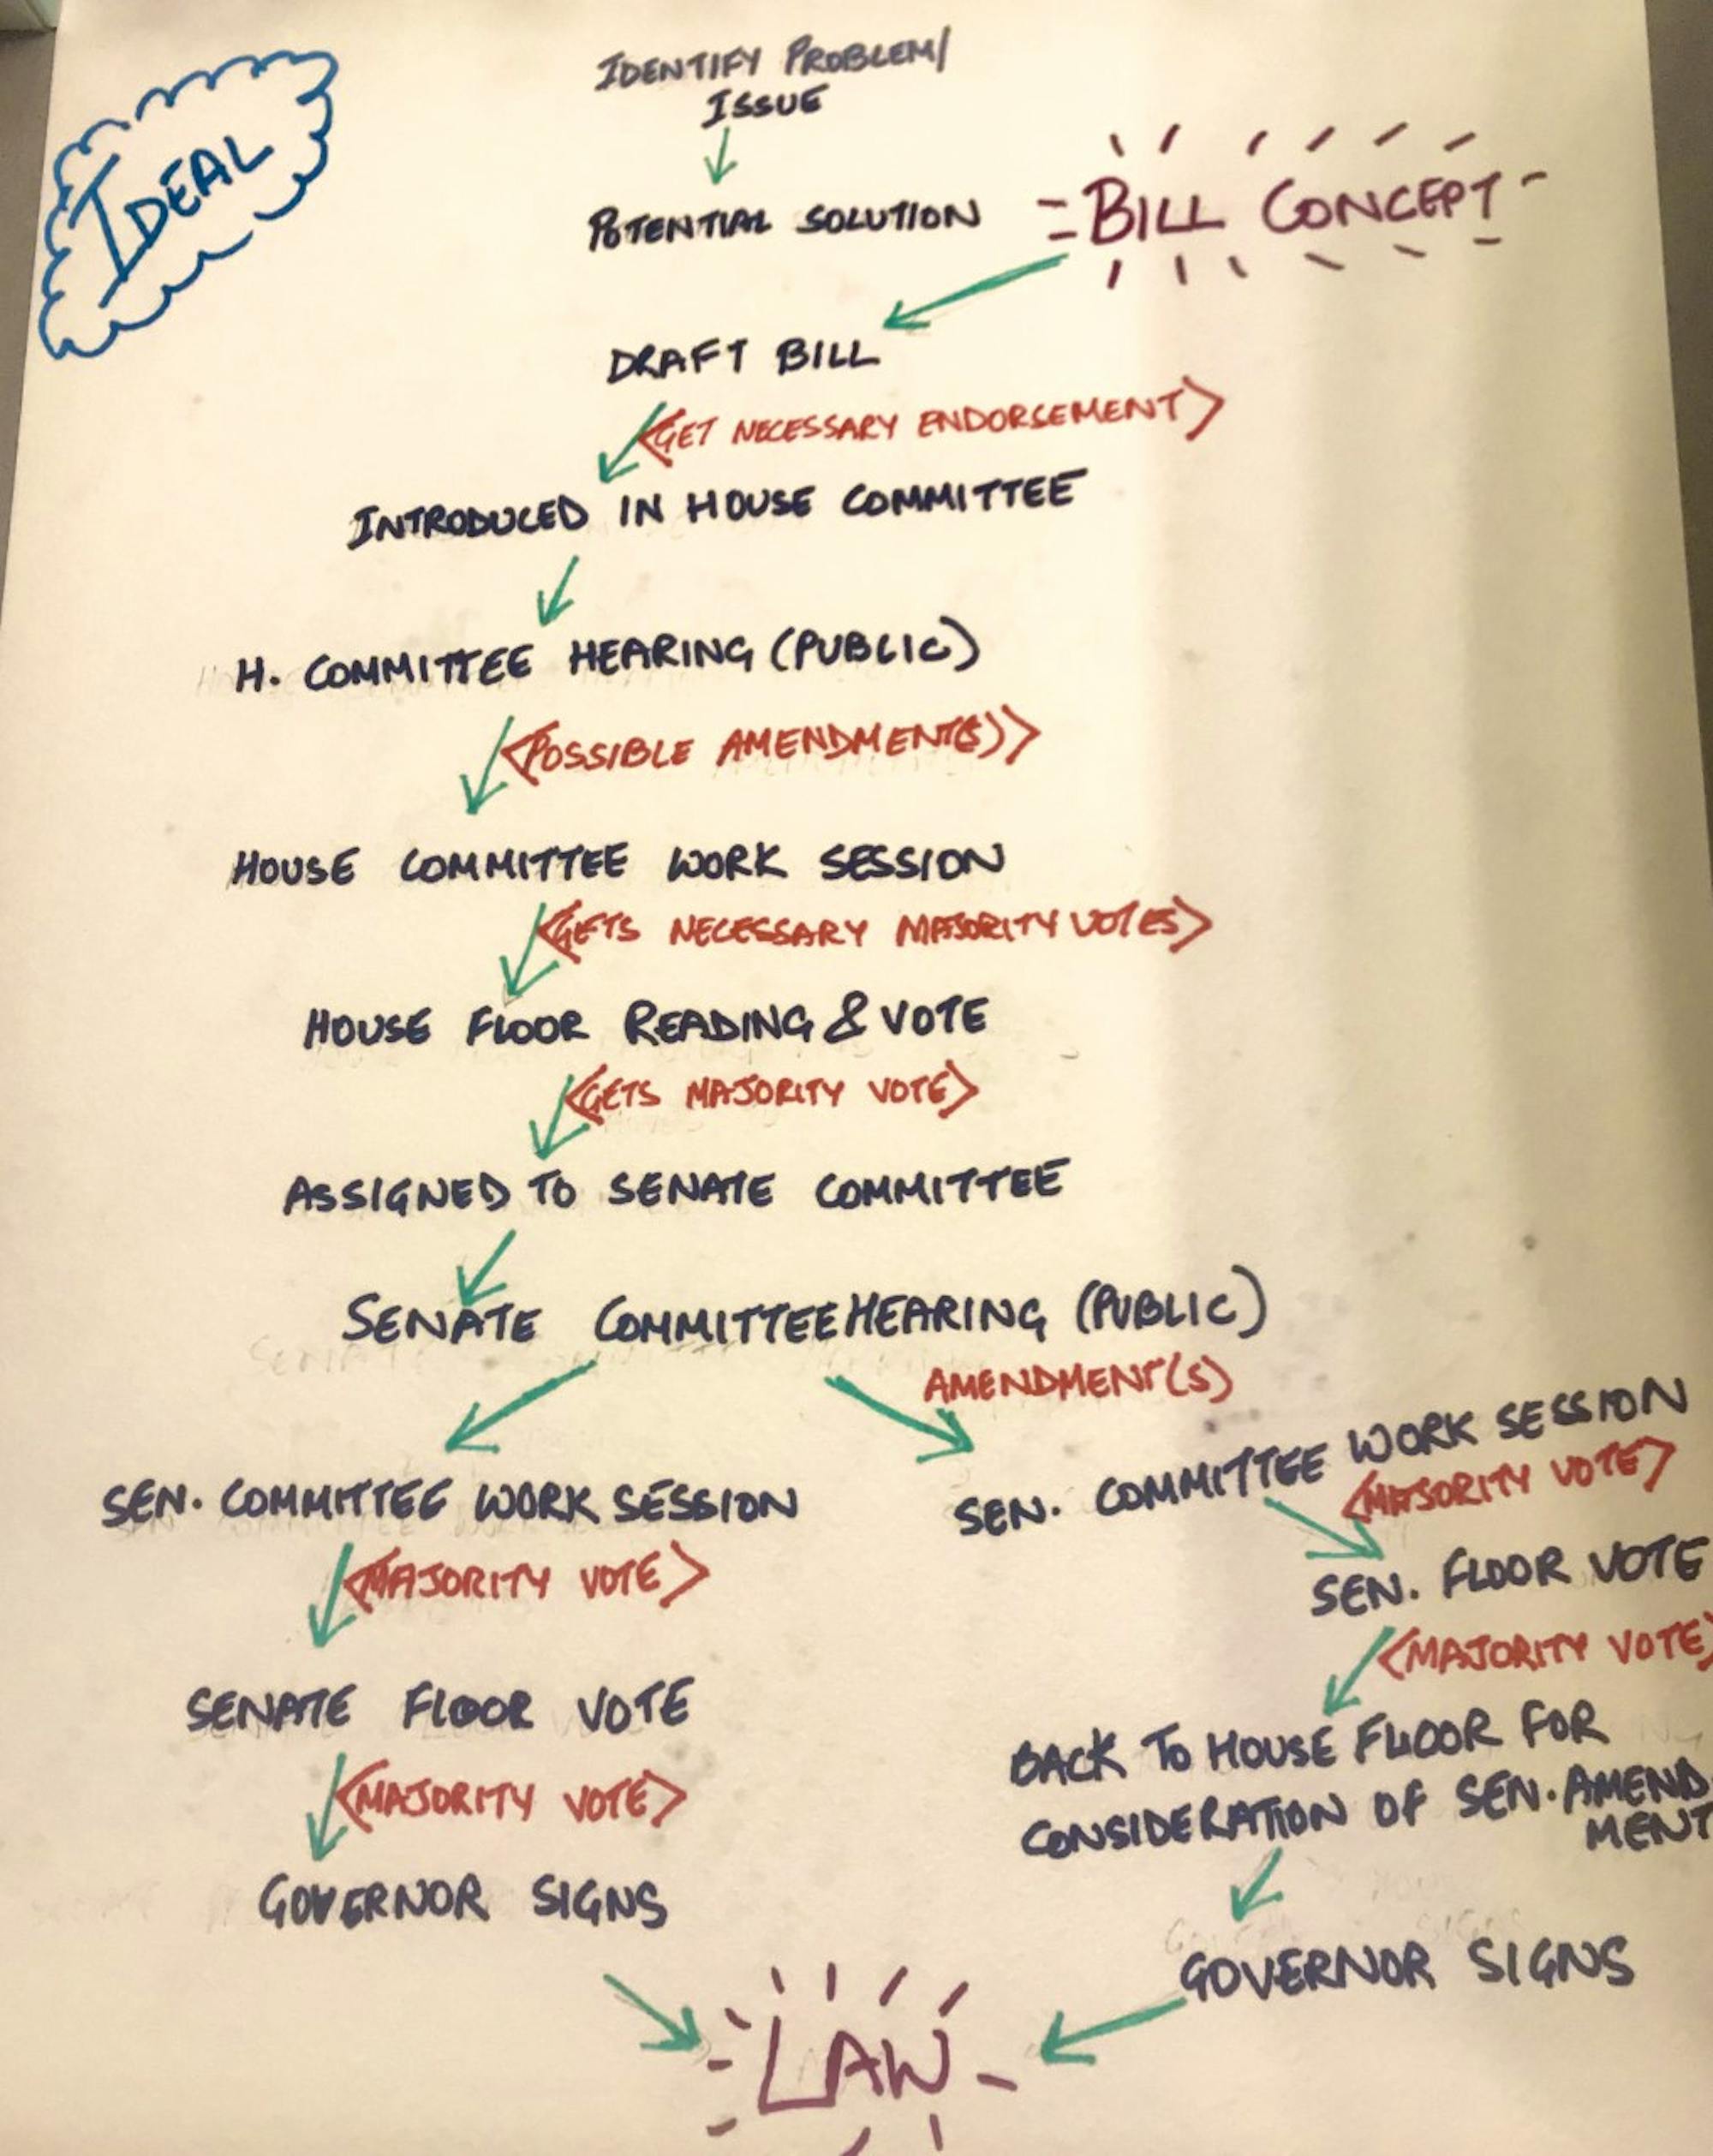 IDEAL
IDENTIFY PROBLEM/
ISSUE
POTENTIAL SOLUTION = BILL CONCEPT
DRAFT BILL
<GET NECESSARY ENDORSEMENT>
INTRODUCED IN HOUSE COMMITTEE
H. COMMITTEE HEARING (PUBLIC)
<POSSIBLE AMENDMENT(S)>
HOUSE COMMITTEE WORK SESSION
<GETS NECESSARY MAJORITY VOTES>
HOUSE FLOOR READING & VOTE
<GETS MAJORITY VOTE>
ASSIGNED TO SENATE COMMITTEE
SENATE COMMITTEE HEARING (PUBLIC)
AMENDMENT(S)
SEN. COMMITTEE WORK SESSION
<MAJORITY VOTE>
SENATE FLOOR VOTE
<MAJORITY VOTE>
GOVERNOR SIGNS
SEN. COMMITTEE WORK SESSION
<MAJORITY VOTE>
SEN. FLOOR VOTE
<MAJORITY VOTE>
BACK TO HOUSE FLOOR FOR
CONSIDERATION OF SEN. AMEND-
MENT
GOVERNOR SIGNS
LAW